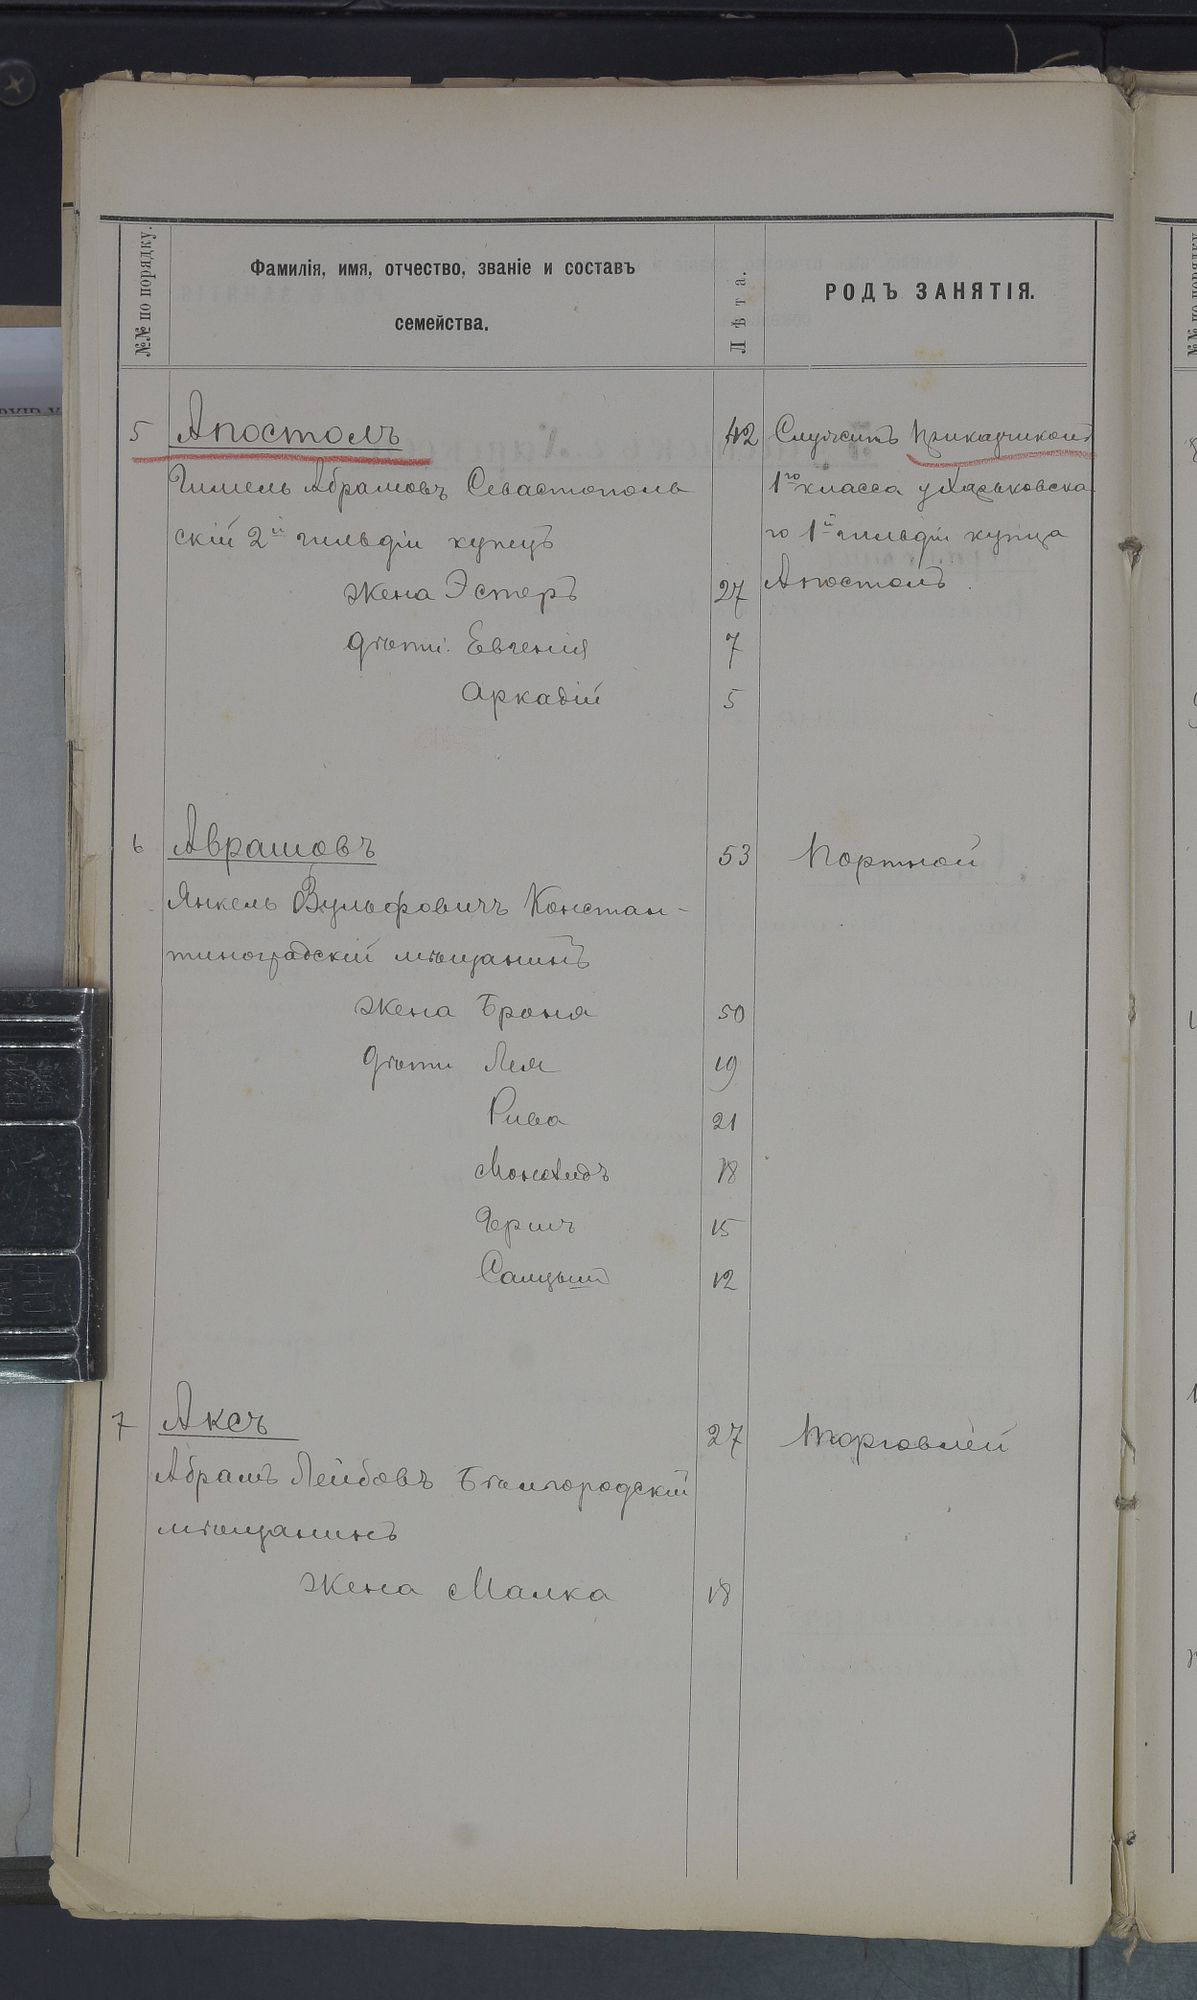 №№ по порядку.
Фамилія, имя, отчество, званіе и составъ
семейства.
Лѣта.
РОДЪ ЗАНЯТІЯ.
5 Апостолъ 42 Служитъ приказчикомъ
Гимель Абрамовъ Севастополь 1го класса у Харьковска
скій 2й гильдіи купецъ го 1й гильдіи купца
Жена Эстеръ 27 Апостолъ
дѣти: Евгенія 7
Аркадій 5
6 Аврамовъ 53 Портной
Янкель Вульфовичъ Констан-
тиноградскій мѣщанинъ
Жена Броня 50
дѣти Лея 19
Рива 21
18
Герш 15
12
7 Аксъ 27 Торговлей
Абрамъ Лейбовъ Бѣлгородскій
мѣщанинъ
Жена Малка 18